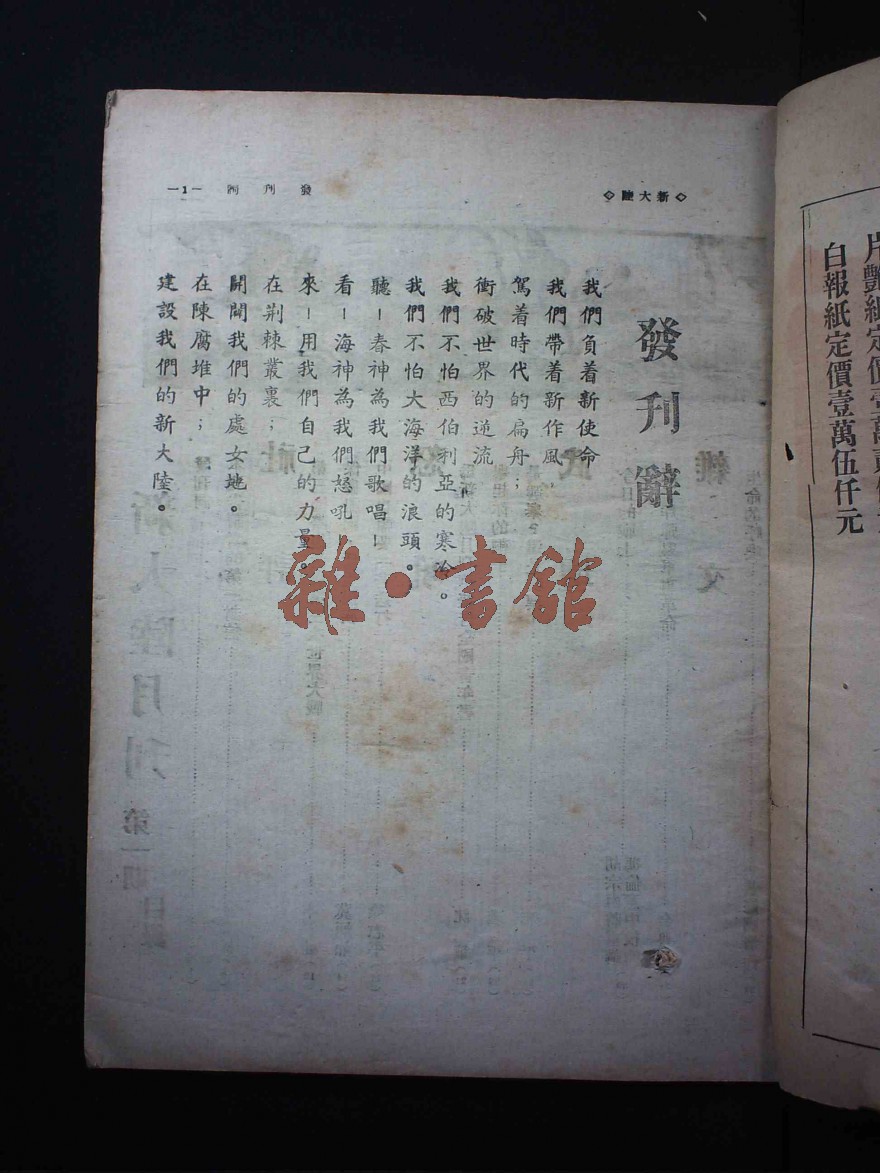 ◇新大陸◇
發刊詞
—1—
發刊辭
我們負着新使命
我們帶着新作風
駕着時代的扁舟；
衝破世界的逆流
我們不怕西伯利亞的寒冷。
我們不怕大海洋的浪頭。
聽！春神為我們歌唱！
看！海神為我們怒吼
來！用我們自己的力量。
在荆棘叢裏；
開闢我們的處女地。
在陳腐堆中；
建設我們的新大陸。
雜·書館
白報紙定價壹萬伍仟元